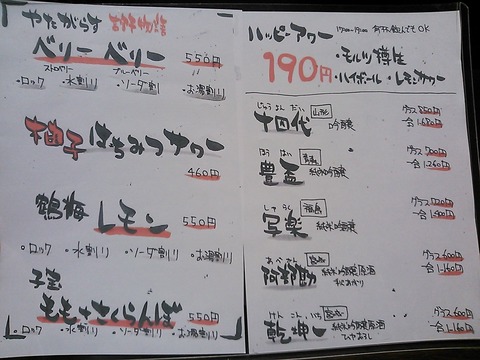 やたがらす
ベリーベリー 550円
ストロベリー ブルーベリー
・ロック ・水割り ・ソーダ割り ・お湯割り
柚子はちみつサワー
460円
鶴梅 レモン 550円
・ロック ・水割り ・ソーダ割り ・お湯割り
子宝
もも+さくらんぼ 550円
・ロック ・水割り ・ソーダ割り ・お湯割り
ハッピーアワー 何杯飲んでもOK
190円 ・モルツ樽生
・ハイボール・レモンサワー
じゅうよんだい
十四代 山形 吟醸酒
グラス 850円
一合 1,680円
ほうはい
豊盃 青森 純米吟醸酒
グラス 700円
一合 1,260円
しゃらく
写楽 福島 純米吟醸酒
グラス
一合
あべかん
阿部勘 宮城 純米吟醸原酒
グラス 600円
一合 1,160円
けんこんいち
乾坤一 宮城 純米吟醸原酒
ひやおろし
グラス 600円
一合 1,160円